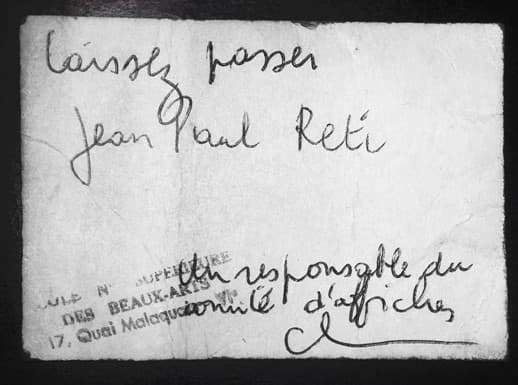 Laissez passer
Jean Paul Reti
Un responsable du
comité d'affiches
COLE Nle SUPERIEURE
DES BEAUX-ARTS
17, Quai Malaquais VIe